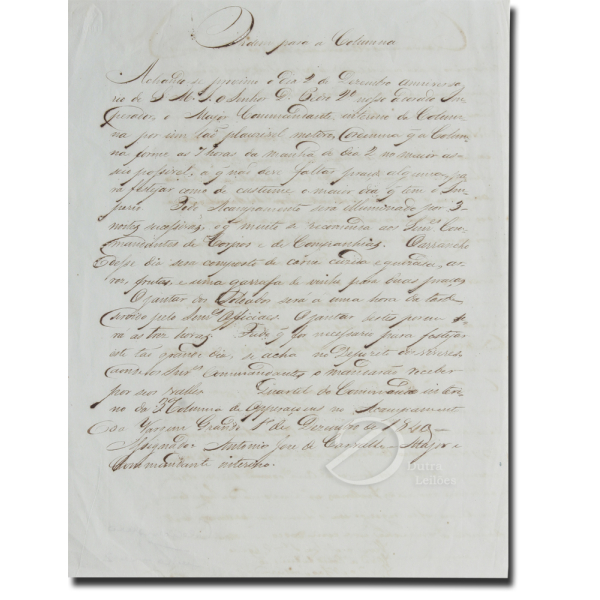 Ordem para a Columna
Achando se proximo o dia 2 de Dezembro anniversa
rio de S. M. I. o Senhor D. Pedro 2º nosso Im
perador, o Major Commandante interino da Colum
na por um tão plausivel motivo, q a Colum
na forme as 7 horas da manhã do dia 2 no maior as
seio possivel, a q não deve faltar praça alguma, pa
ra festejar como de costume o maior dia q tem o Im
perio. Este Acampamento será illuminado por 3
noites sucessivas, o q muito se recomenda aos Senres Com
mandantes de Corpos e de Companhias. O rancho
desse dia será composto de carne e guizada, ar
ros, frutas, e uma garrafa de vinho para duas praças
O jantar dos Soldados será a uma hora da tarde
servido pelos Senres Officiaes. O jantar destes
as tres horas. Tudo q for necessario para festejar
este tão grande dia, se acha no Deposito de viveres
Senres Commandantes o mandarão receber
por seus vallles Quartel do Commando inte
no da 3ª Columna de Operações no Acampamento
da Vargem Grande 1º de Dezembro de 1840 —
Assignado Antonio Jose de — Major e
Commandante interino.
Dutra
Leilões